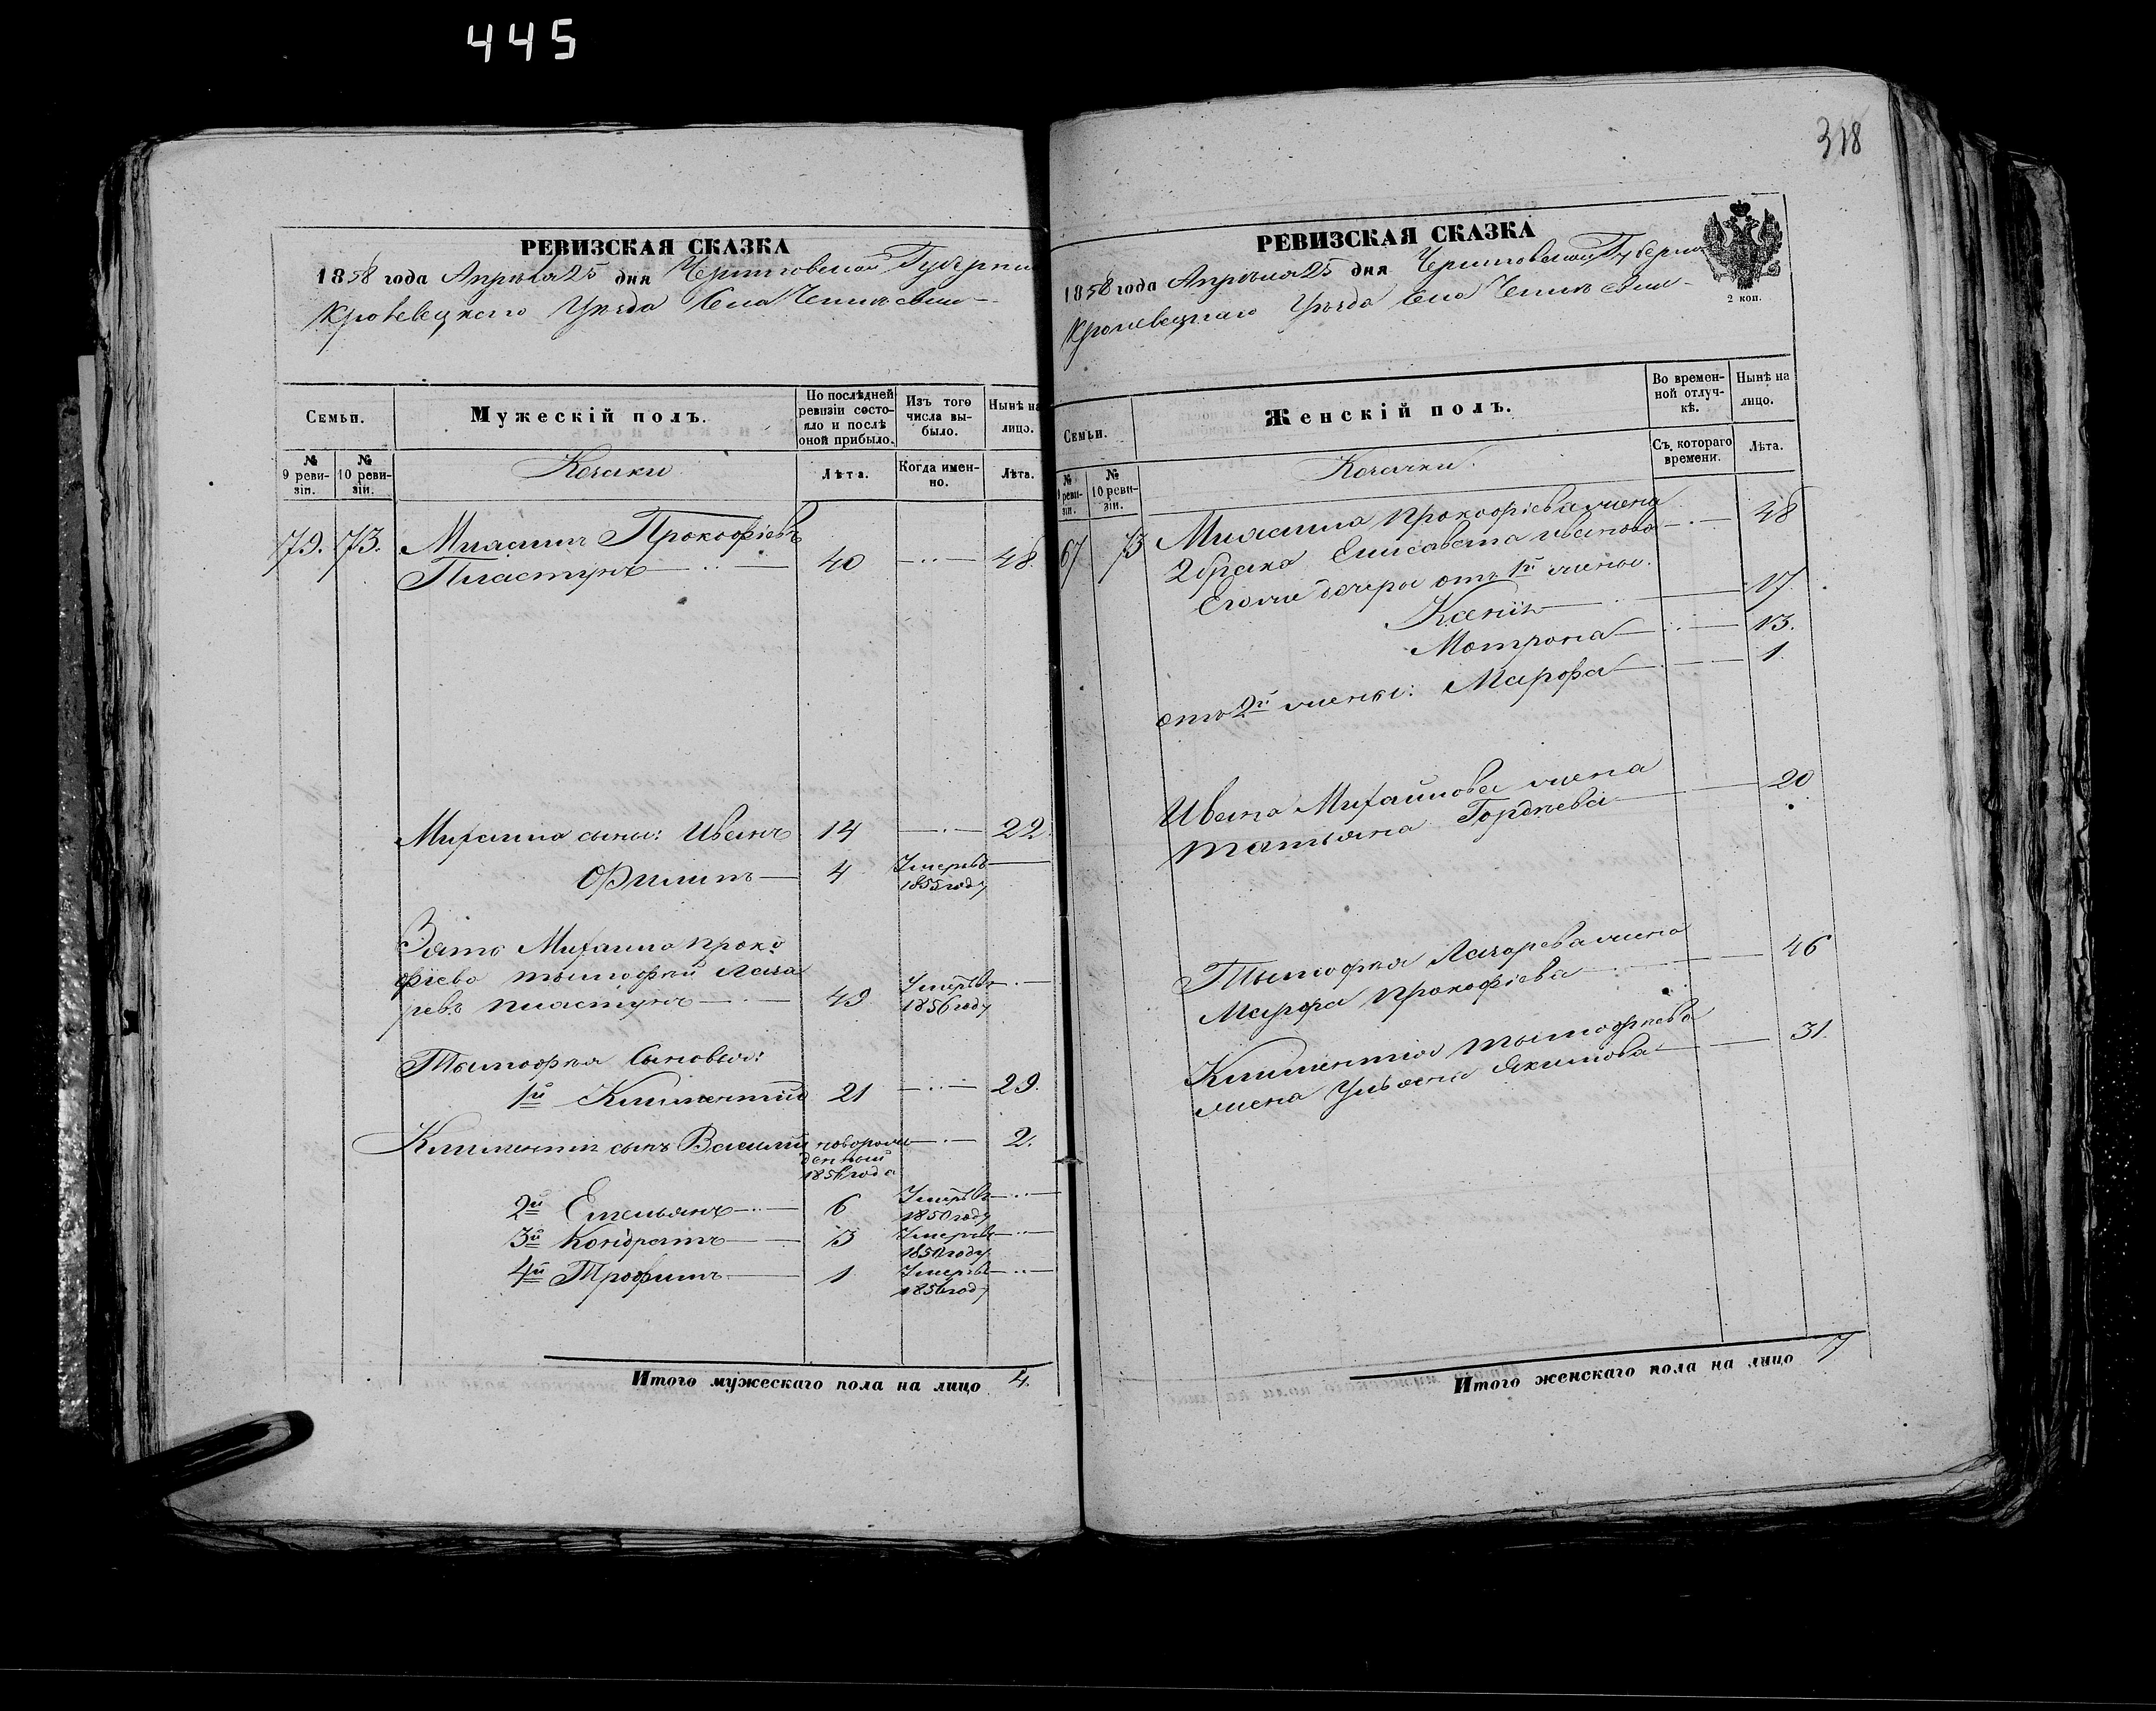 445
РЕВИЗСКАЯ СКАЗКА
1858 года Апреля 25 дня Черниговской Губерніи
Кролевецкого Уезда Села
Семьи.
Мужескій полъ.
По послѣдней ревизіи состояло и послѣ оной прибыло.
Изъ того числа выбыло.
Нынѣ на лицо.
№ 9 ревизіи.
№ 10 ревизіи.
Козаки
Лѣта.
Когда именно.
Лѣта.
79. 73. Михаилъ Прокофіевъ
Пластунъ 40 48.
Михаила сыны: Иванъ 14 22
Филипъ 4 Умеръ
1855 году
Зять Михаила Проко
фіева Тымофей Лаза
ревъ Пластунъ 49 Умеръ
1856 году
Тымофея Сыновья:
1й Климентий 21 29.
Климентія сынъ Василий новорож 2.
денный
1856 года
2й Емельянъ 6 Умеръ
1850 году
3й Кондратъ 3 Умеръ
1850 году
4й Трофимъ 1 Умеръ
1850 году
Итого мужескаго пола на лицо 4.
318
РЕВИЗСКАЯ СКАЗКА
1858 года Апреля 25 дня Черниговской Губерніи
Кролевецкаго Уезда Села
2 коп.
Семьи.
Женскій полъ.
Во временной отлучкѣ.
Нынѣ на лицо.
№ 9 ревизіи.
№ 10 ревизіи.
Козачки.
Съ котораго времени.
Лѣта.
67 73 Михаила Прокофіева жена
2 брака Елисавета Иванова 48
Его же дочери отъ 1й жены.
Ксенія 17
Мотрона 13.
отъ 2й жены: Марфа 1
Ивана Михайлова жена
Татьяна Гордеева 20
Тымофея Лазарева жена
Марфа Прокофіева 46
Климентія Тымофеева
жена Ульяна Якимова 31.
Итого женскаго пола на лицо 7